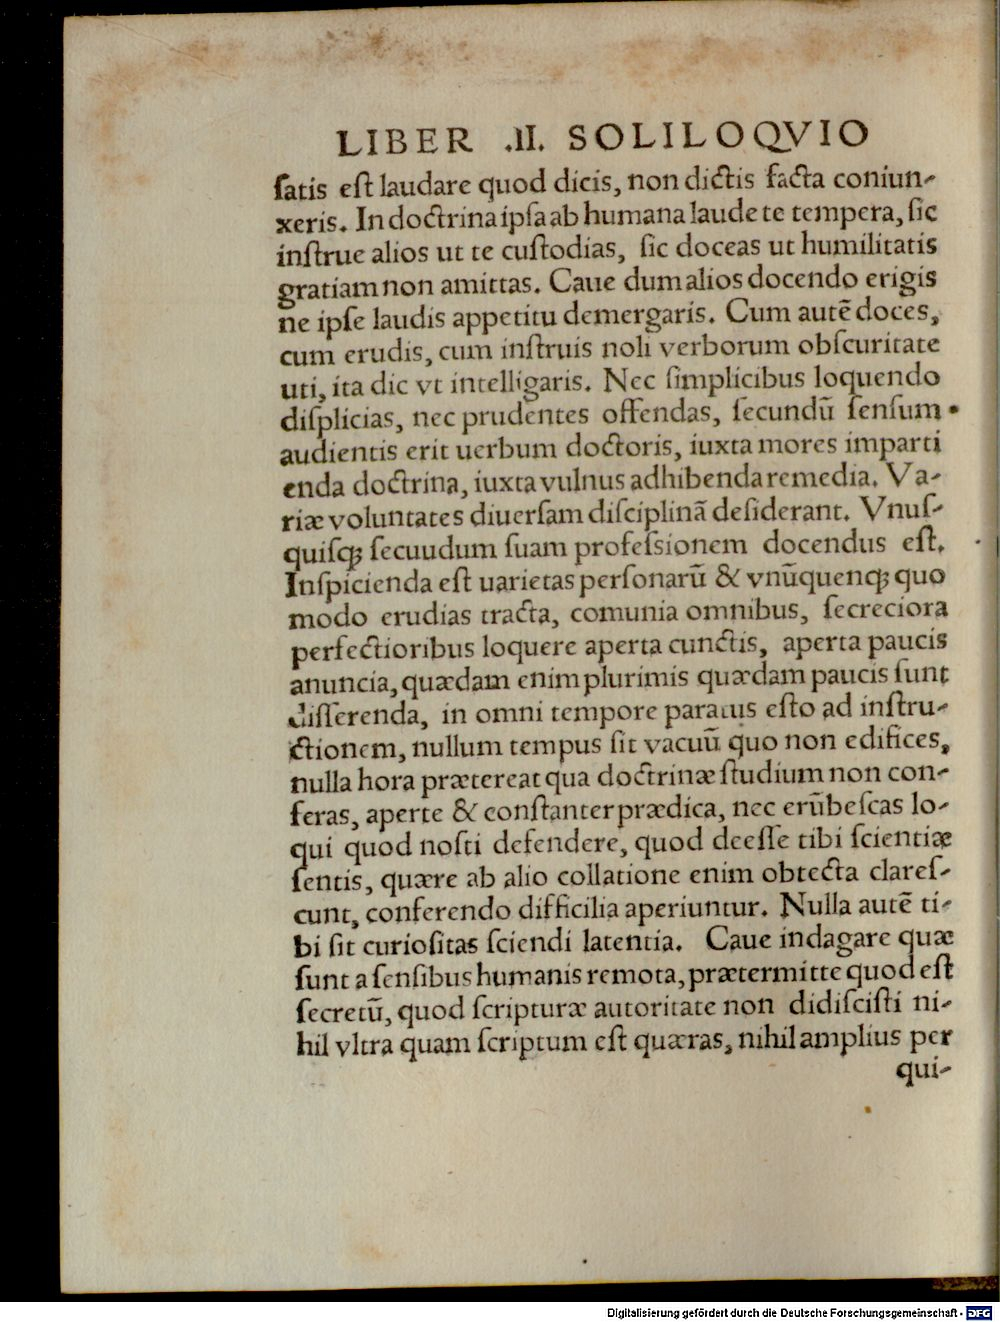 LIBER .II. SOLILOQVIO
ſatis eſt laudare quod dicis, non dictis facta coniun-
xeris. In doctrina ipſa ab humana laude te tempera, ſic
inſtrue alios ut te cuſtodias, ſic doceas ut humilitatis
gratiam non amittas. Caue dum alios docendo erigis
ne ipſe laudis appetitu demergaris. Cum autē doces,
cum erudis, cum inſtruis noli verborum obſcuritate
uti, ita dic vt intelligaris. Nec ſimplicibus loquendo
diſplicias, nec prudentes offendas, ſecundū ſenſum
audientis erit uerbum doctoris, iuxta mores imparti
enda doctrina, iuxta vulnus adhibenda remedia. Va-
riæ voluntates diuerſam diſciplinā deſiderant. Vnuſ-
quiſqꝫ ſecuudum ſuam profeſsionem docendus eſt.
Inſpicienda eſt uarietas perſonarū & vnūquenqꝫ quo
modo erudias tracta, comunia omnibus, ſecreciora
perfectioribus loquere aperta cunctis, aperta paucis
anuncia, quædam enim plurimis quædam paucis ſunt
diſſerenda, in omni tempore paratus eſto ad inſtru-
ctionem, nullum tempus ſit vacuū quo non edifices,
nulla hora prætereat qua doctrinæ ſtudium non con-
feras, aperte & conſtanter prædica, nec erūbeſcas lo-
qui quod noſti defendere, quod deeſſe tibi ſcientiæ
ſentis, quære ab alio collatione enim obtecta clareſ-
cunt, conferendo difficilia aperiuntur. Nulla autē ti-
bi ſit curioſitas ſciendi latentia. Caue indagare quæ
ſunt a ſenſibus humanis remota, prætermitte quod eſt
ſecretū, quod ſcripturæ autoritate non didiſciſti ni-
hil vltra quam ſcriptum eſt quæras, nihil amplius per
qui-
Digitalisierung gefördert durch die Deutsche Forschungsgemeinschaft - DFG